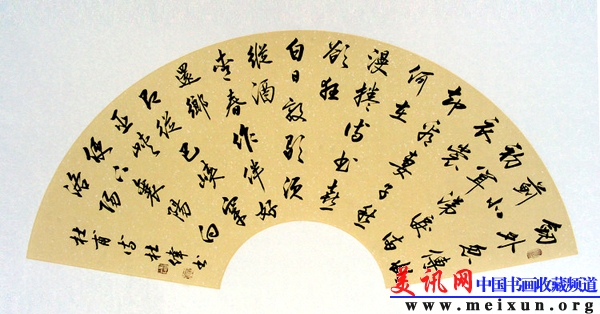 劍外忽傳收
薊北
初聞涕淚滿
衣裳
却看妻子愁
何在
漫捲诗书喜
欲狂
白日放歌須
縱酒
青春作伴好
還鄉
即從巴峽穿
巫峽
便下襄陽向
洛陽
杜甫诗 杜偉书
美讯网 中国书画收藏频道
www.meixun.org